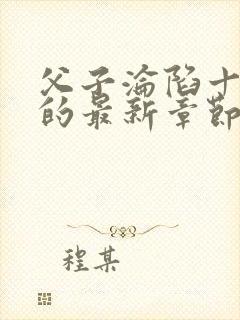 父子淪陷十
的最新章節
程某